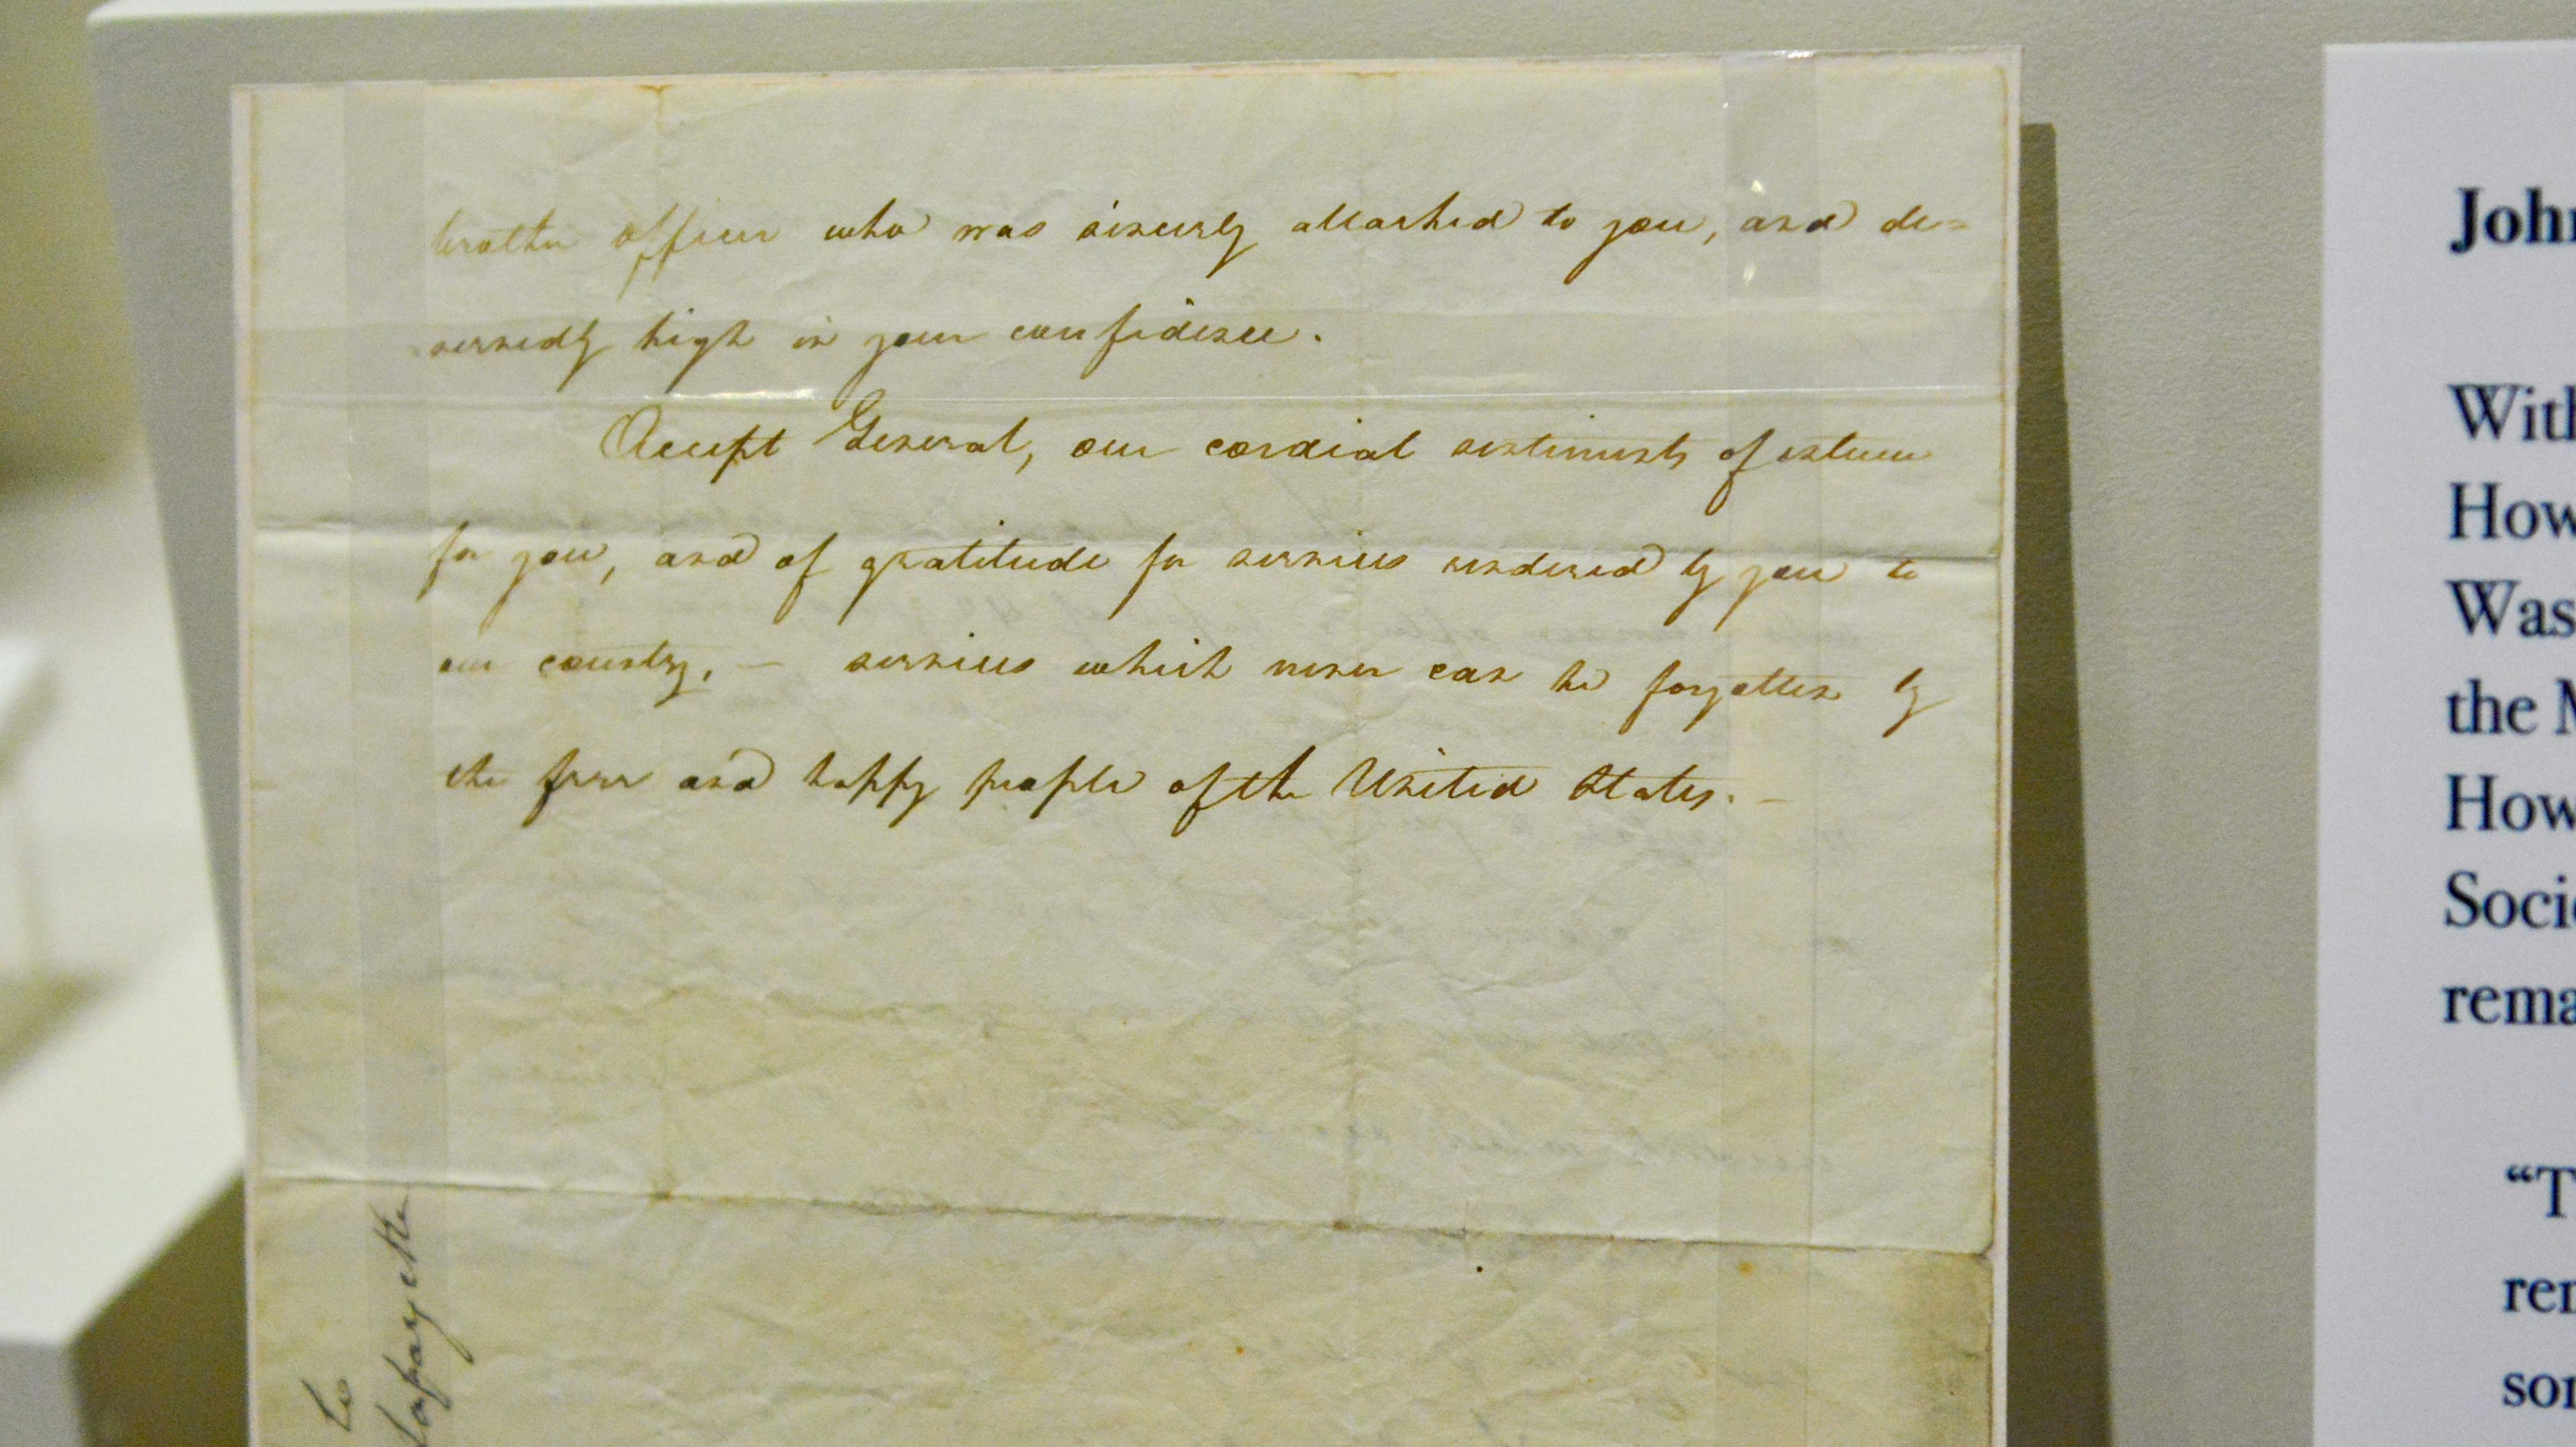 brother officer who was sincerely attached to you, and de=
servedly high in your confidence.
Accept General, our cordial sentiments of esteem
for you, and of gratitude for services rendered by you to
our country, — services which never can be forgotten by
the free and happy people of the United States. —
to
Lafayette
John
With
How
Was
the M
How
Soci
rema
“T
rem
som